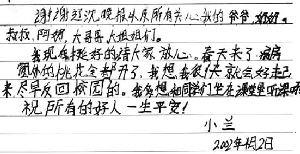 谢谢辽沈晚报以及所有关心我的爷爷、奶奶、
叔叔、阿姨、大哥哥大姐姐们。
我现在挺好的请大家放心。春天来了病房
窗外的桃花全都开了，我想我很快就会好起
来尽早反回校园的。我多想和同学们坐在课堂里听课呀
祝所有的好人一生平安！
小兰
2002年4月2日